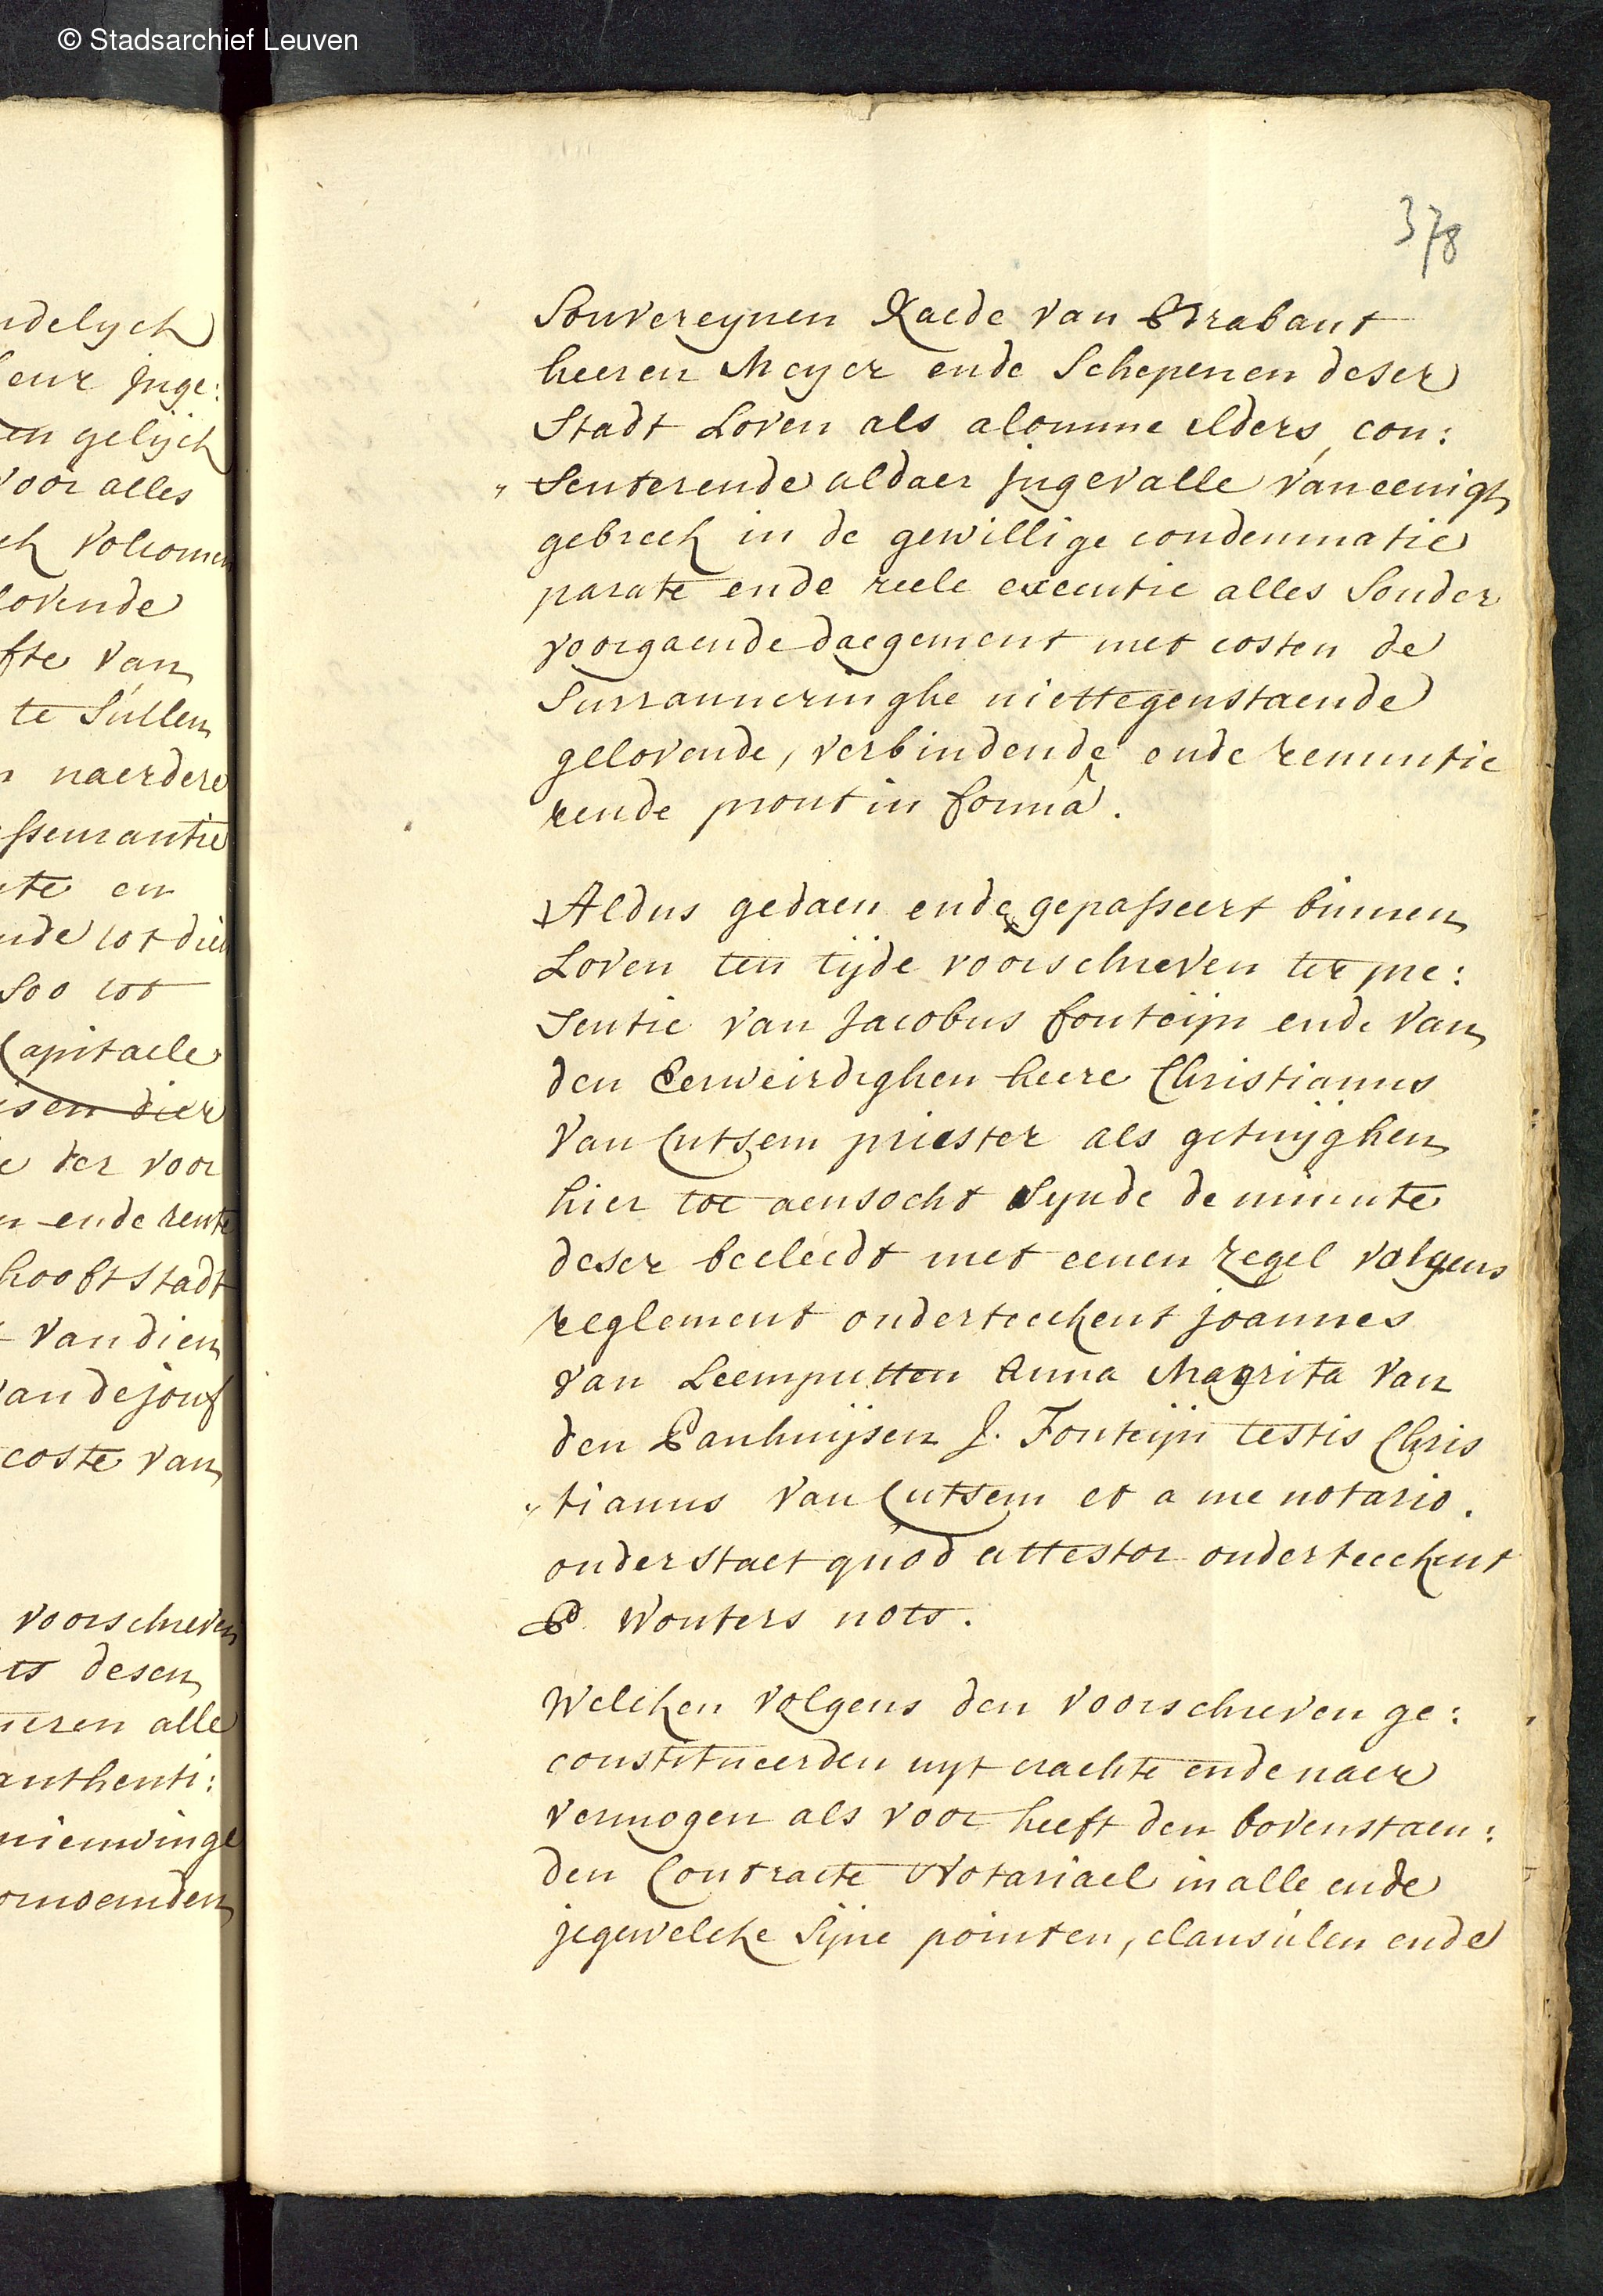 © Stadsarchief Leuven
378
Souvereynen Raede van Brabant
heeren Meyer ende Schepenen deser
Stadt Loven als alomme elders, con:
„ Senterende aldaer jngevalle van eenigh
gebreck in de gewillige condemnatie
parate ende reele executie alles Sonder
voorgaende daegement met costen de
Surranneringhe niettegenstaende
gelovende, verbindende ende renuntie
rende prout in formâ.
Aldus gedaen ende gepasseert binnen
Loven ten tijde voorschreven ter pre:
Sentie van Jacobus fonteijn ende van
den Eerweirdighen heere Christianus
van Cutsem priester als getuijghen
hier toe aensocht Synde de minute
deser beeleedt met eenen zegel volgens
reglement onderteeckent joannes
van Leemputten Anna Magrita van
den Panhuijsen J. Fonteijn testis Chris
„ tianus van Cutsem et a me notario.
onderstaet quod attestor onderteeckent
P. Wouters nots.
Welcken volgens den voorschreven ge:
constitueerden uyt crachte ende naer
vermogen als voor heeft den bovenstaen:
den Contracte Notariael in alle ende
jegewelcke Sijne pointen, clausúlen ende
ndelyck
leur jnge:
en gelijck
voor alles
ck volcomen
lovende
fte van
te Súllen
naerdere
sseurantie
te en
nde tot dien
Soo tot
Capitaele
isen dier
e der voor
n ende rente
hooft Stadt
van dien
van de jouf
coste van
voorschreven
ts desen
ieren alle
authenti:
nieuwinge
ornoemden